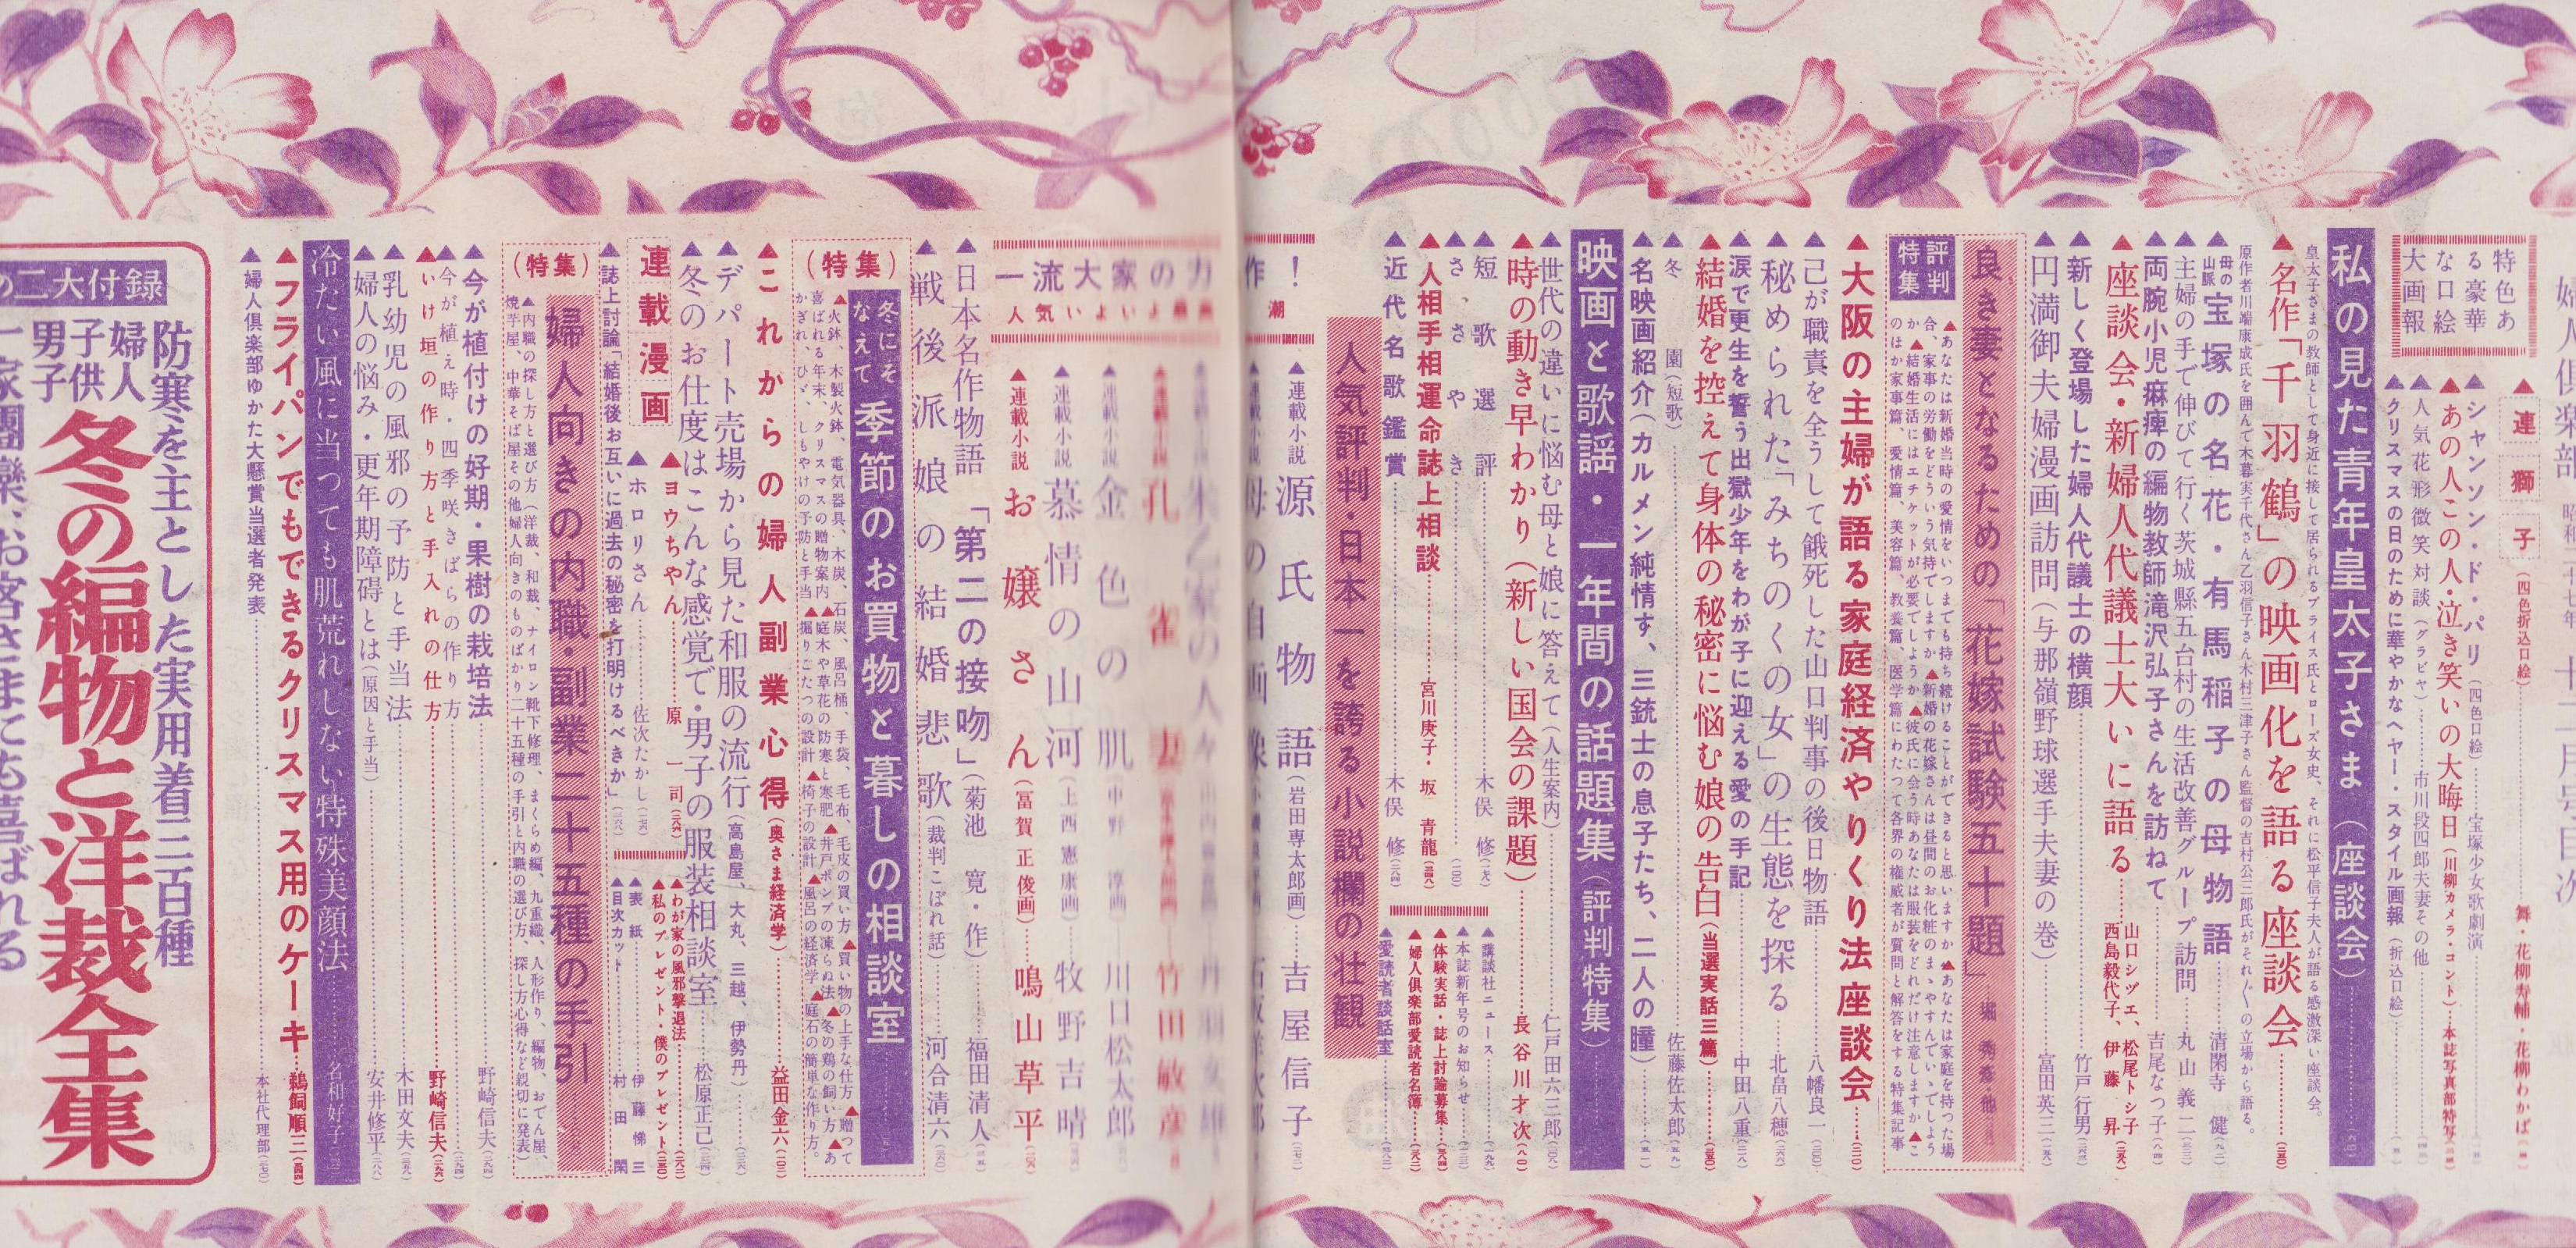 婦人倶楽部 昭和二十七年 十二月号目次
特色あ
る豪華
な口絵
大画報
▲連獅子(四色折込口絵) 舞・花柳寿輔・花柳わかば
▲シャンソン・ド・パリ(四色口絵) 宝塚少女歌劇演
▲あの人この人・泣き笑いの大晦日(川柳カメラ・コント) 本誌写真部特写
▲人気花形微笑対談(グラビヤ) 市川段四郎夫妻その他
▲クリスマスの日のために華やかなヘヤー・スタイル画報(折込口絵)
私の見た青年皇太子さま(座談会)
皇太子さまの教師として身近に接して居られるブライス氏とローズ女史、それに松平信子夫人が語る感激深い座談会。
▲名作「千羽鶴」の映画化を語る座談会
原作者川端康成氏を囲んで木暮実千代さん乙羽信子さん木村三津子さん監督の吉村公三郎氏がそれ〲の立場から語る。
▲母の山脈 宝塚の名花・有馬稲子の母物語 清閑寺健
▲主婦の手で伸びて行く茨城縣五台村の生活改善グループ訪問 丸山義二
▲両腕小児麻痺の編物教師滝沢弘子さんを訪ねて 吉尾なつ子
▲座談会・新婦人代議士大いに語る 山口シヅエ、松尾トシ子 西島毅代子、伊藤昇
▲新しく登場した婦人代議士の横顔 竹戸行男
▲円満御夫婦漫画訪問(与那嶺野球選手夫妻の巻) 富田英三
良き妻となるための「花嫁試験五十題」 堀秀彦・他
評判特集
▲あなたは新婚当時の愛情をいつまでも持ち続けることができると思いますか▲あなたは家庭を持つた場
合、家事の労働をどういう気持でしますか▲新婚の花嫁さんは昼間のお化粧のまゝやすんでいゝでしよう
か▲結婚生活にはエチケットが必要でしようか▲彼氏に会う時あなたは服装をどれだけ注意しますか▲こ
のほか家事篇、愛情篇、美容篇、教養篇、医学篇にわたつて各界の権威者が質問と解答をする特集記事
▲大阪の主婦が語る家庭経済やりくり法座談会
▲己が職責を全うして餓死した山口判事の後日物語 八幡良一
▲秘められた「みちのくの女」の生態を探る 北畠八穂
▲涙で更生を誓う出獄少年をわが子に迎える愛の手記 中田八重
▲結婚を控えて身体の秘密に悩む娘の告白(当選実話三篇)
▲冬 園(短歌) 佐藤佐太郎
▲名映画紹介(カルメン純情す、三銃士の息子たち、二人の瞳)
映画と歌謡・一年間の話題集(評判特集)
▲世代の違いに悩む母と娘に答えて(人生案内) 仁戸田六三郎
▲時の動き早わかり(新しい国会の課題) 長谷川才次
▲短歌選評 木俣修
▲さゝやき
▲人相手相運命誌上相談 宮川庚子・坂青龍
▲近代名歌鑑賞 木俣修
▲講談社ニュース
▲本誌新年号のお知らせ
▲体験実話・誌上討論募集
▲婦人倶楽部愛読者名簿
▲愛読者談話室
人気評判・日本一を誇る小説欄の壮観
一流大家の力作!
人気いよいよ
潮
▲連載小説 源氏物語(岩田専太郎画) 吉屋信子
▲連載小説 母の自画像
▲連載小説 孔雀妻 竹田敏彦
▲連載小説 金色の肌(中野淳画) 川口松太郎
▲連載小説 慕情の山河(上西憲康画) 牧野吉晴
▲連載小説 お嬢さん(富賀正俊画) 鳴山草平
▲日本名作物語「第二の接吻」(菊池寛・作) 福田清人
▲戦後派娘の結婚悲歌(裁判こぼれ話) 河合清六
(特集)
冬にそなえて 季節のお買物と暮しの相談室
▲火鉢、木製火鉢、電気器具、木炭、石炭、風呂桶、手袋、毛布、毛皮の買い方▲買い物の上手な仕方▲贈つて
喜ばれる年末、クリスマスの贈物案内▲庭木や草花の防寒と寒肥▲井戸ポンプの凍らぬ法▲冬の鶏の飼い方▲あ
かぎれ、ひゞ、しもやけの予防と手当▲掘りごたつの設計▲椅子の設計▲風呂の経済学▲庭石の簡単な作り方。
▲これからの婦人副業心得(奥さま経済学) 益田金六
▲デパート売場から見た和服の流行(高島屋、大丸、三越、伊勢丹)
▲冬のお仕度はこんな感覚で・男子の服装相談室 松原正己
連載漫画
▲ヨウちやん 原一司
▲ホロリさん 佐次たかし
▲わが家の風邪撃退法
▲私のプレゼント・僕のプレゼント
▲表紙 伊藤悌三
▲目次カット 村田閑
▲誌上討論「結婚後お互いに過去の秘密を打明けるべきか」
(特集)
婦人向きの内職・副業二十五種の手引
▲内職の探し方と選び方(洋裁、和裁、ナイロン靴下修理、まくらめ編、九重織、人形作り、編物、おでん屋、
焼芋屋、中華そば屋その他婦人向きのものばかり二十五種の手引と内職の選び方、探し方心得など親切に発表)
▲今が植付けの好期・果樹の栽培法 野崎信夫
▲今が植え時・四季咲きばらの作り方
▲いけ垣の作り方と手入れの仕方 野崎信夫
▲乳幼児の風邪の予防と手当法 木田文夫
▲婦人の悩み・更年期障碍とは(原因と手当) 安井修平
冷たい風に当つても肌荒れしない特殊美顔法 名和好子
▲フライパンでもできるクリスマス用のケーキ 鵜飼順三
▲婦人倶楽部ゆかた大懸賞当選者発表 本社代理部
の二大付録
防寒を主とした実用着三百種
婦人
子供
男子
冬の編物と洋裁全集
一家團欒、お客さまにも喜ばれる